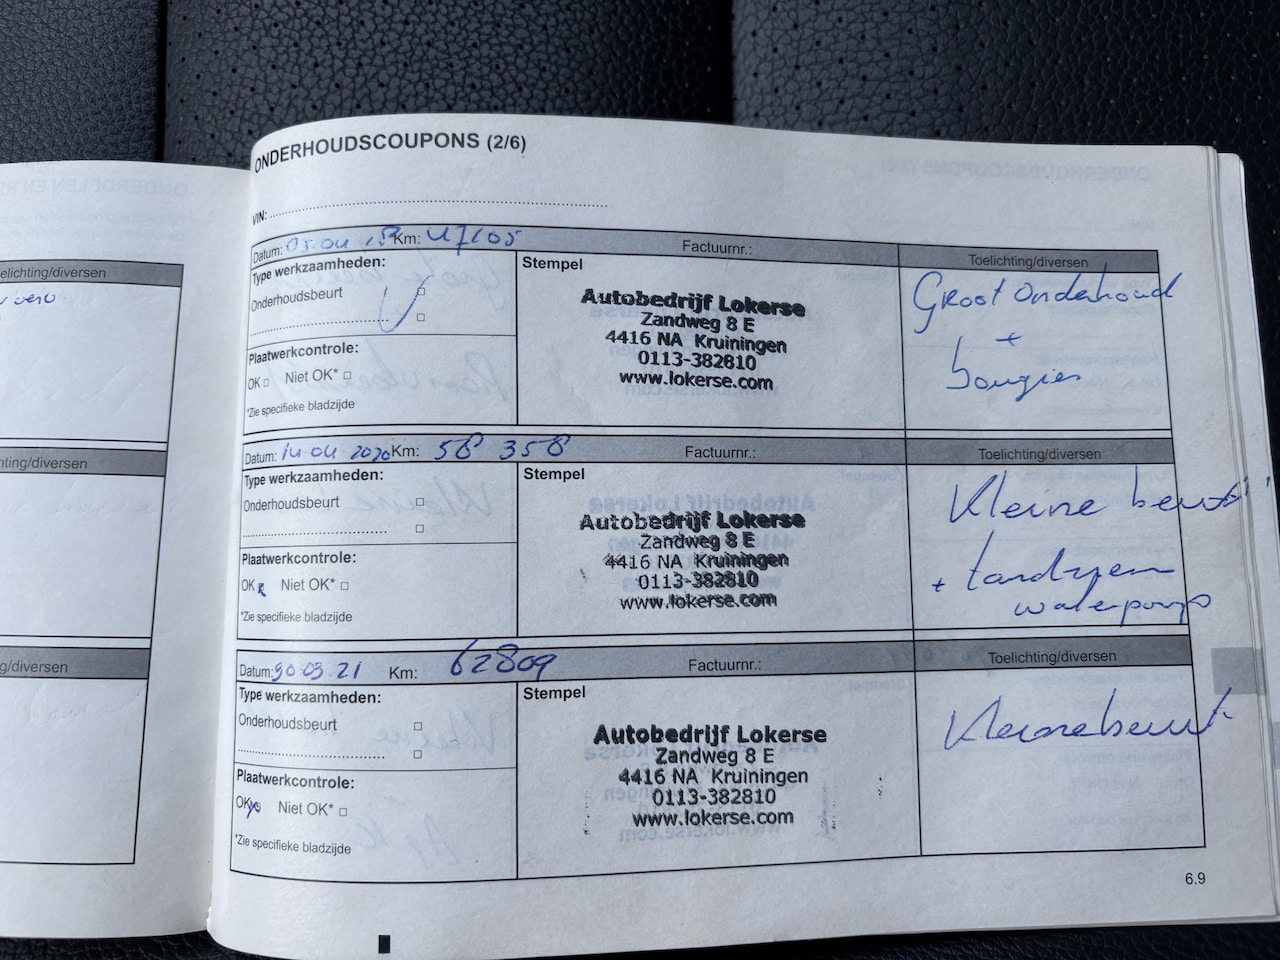 ONDERHOUDSCOUPONS (2/6)
VIN:
Datum: 05.04 Km: 47105 Factuurnr.:
Type werkzaamheden:
Onderhoudsbeurt
Plaatwerkcontrole:
OK Niet OK*
*Zie specifieke bladzijde
Stempel
Autobedrijf Lokerse
Zandweg 8 E
4416 NA Kruiningen
0113-382810
www.lokerse.com
Toelichting/diversen
Groot Onderhoud
+
bougies
Datum: 14.04 2020 Km: 58 358 Factuurnr.:
Type werkzaamheden:
Onderhoudsbeurt
Plaatwerkcontrole:
OK Niet OK*
*Zie specifieke bladzijde
Stempel
Autobedrijf Lokerse
Zandweg 8 E
4416 NA Kruiningen
0113-382810
www.lokerse.com
Toelichting/diversen
Kleine beurt
+ tandriem
waterpomp
Datum: 30 03 21 Km: 62809 Factuurnr.:
Type werkzaamheden:
Onderhoudsbeurt
Plaatwerkcontrole:
OK Niet OK*
*Zie specifieke bladzijde
Stempel
Autobedrijf Lokerse
Zandweg 8 E
4416 NA Kruiningen
0113-382810
www.lokerse.com
Toelichting/diversen
Kleine beurt
6.9